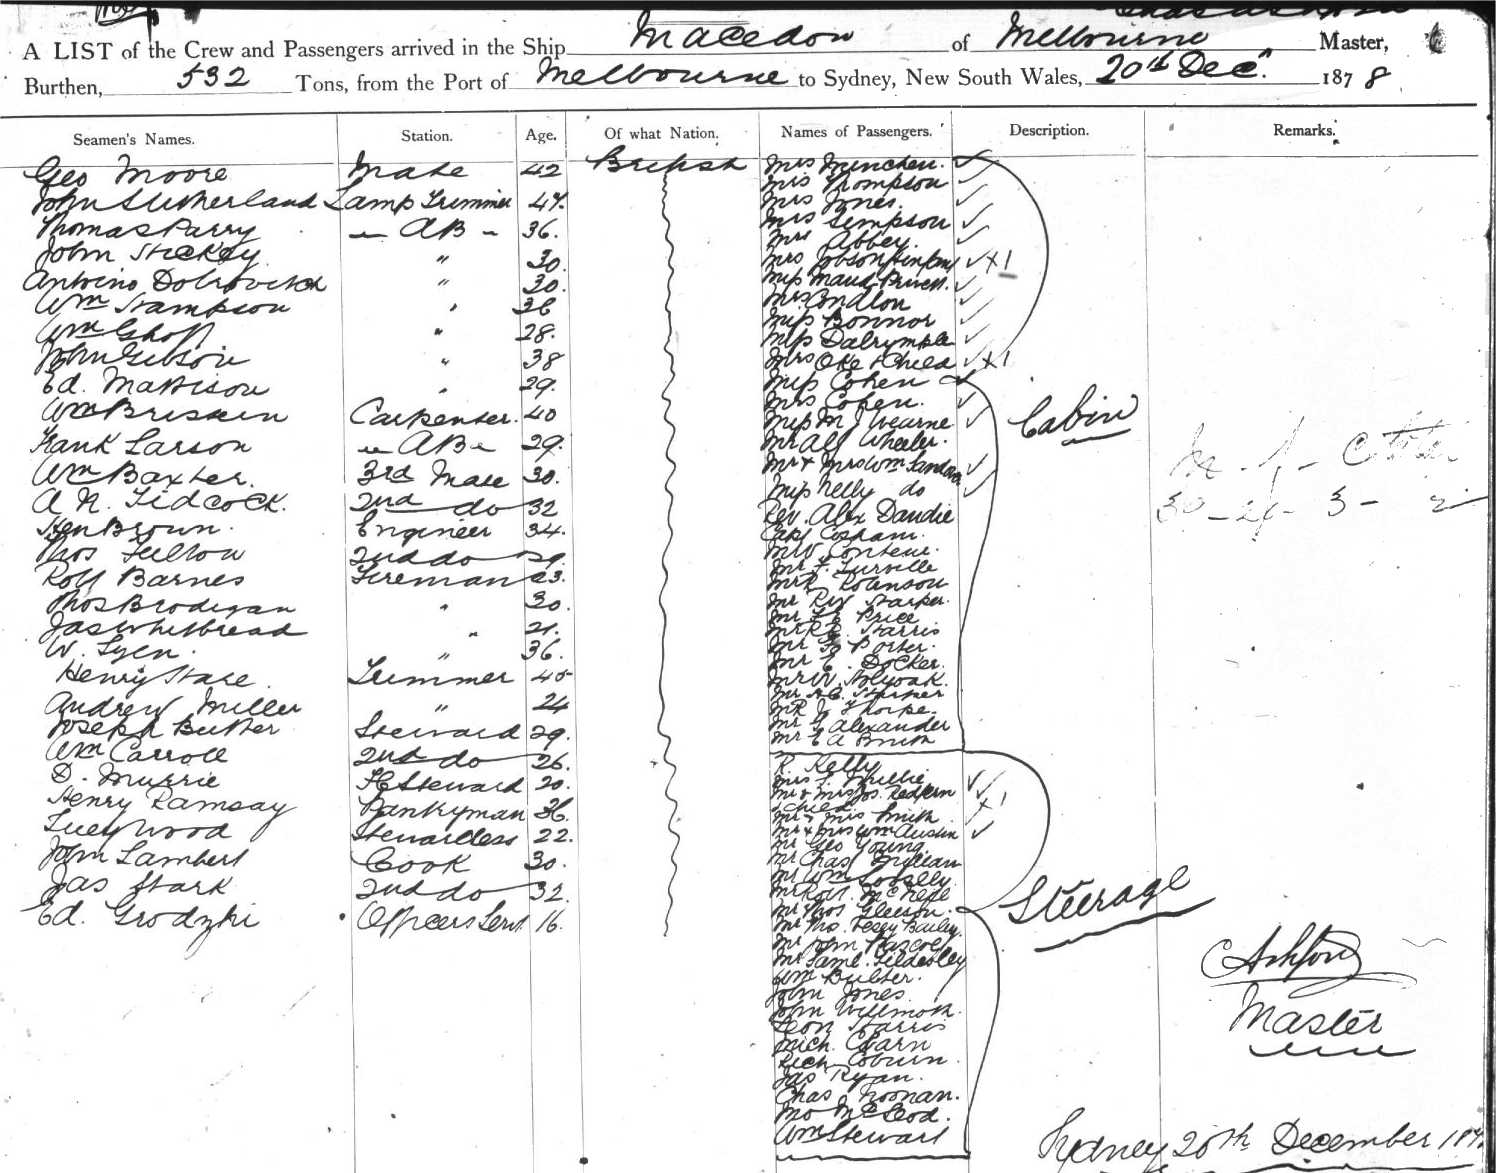 A LIST of the Crew and Passengers arrived in the Ship Macedon of Melbourne Master,
Burthen, 532 Tons, from the Port of Melbourne to Sydney, New South Wales, 20th Dec. 1878
Seamen's Names. Station. Age. Of what Nation. Names of Passengers. Description. Remarks.
Geo Moore Mate 42 British
John Sutherland Lamp Trimmer 47.
Thomas Parry AB 36.
John " 30.
Antoino Dobrovitch " 30.
Wm Stampson " 36
Wm " 28.
John Gibson " 38
Ed. Mattison " 29.
Wm Carpenter. 40
Frank Larson AB 29.
Wm Baxter. 3rd Mate 30.
A N. Tidcock. 2nd do 32
Hen Brown. Engineer 34.
Thos 2nd do 29.
Robt Barnes Fireman 23.
Thos Brodigan " 30.
Jas Whitbread " 21.
W. Lyen. " 36.
Henry Trimmer 40
Andrew Miller " 24
Joseph Butter Steward 29.
Wm Carroll 2nd do 26.
D. Murrie Steward 20.
Henry Ramsay Pantryman 36.
Lucy Wood Stewardess 22.
John Lambert Cook 30.
Jas Stark 2nd do 32.
Ed. Grodzki Officers Servt 16.
Mrs Minchen.
Mrs Thompson
Mrs Jones.
Mrs Simpson
Mrs Abbey.
Mrs Jobson X1
Miss Maud
Mrs
Miss Bonnor
Miss Dalrymple
Mrs Oke & Child X1
Miss Cohen
Mrs Cohen.
Miss M J Wearne
Mr Alf Wheeler.
Mr & Mrs Wm
Miss Nelly do
Rev. Alex Dandie
Capt Cosham.
Mr W
Mr F. Turville
Mr R Robinson
Mr RW Harper.
Mr Price
Mr Harris
Mr Porter.
Mr E. Docker.
Mr W. Holyoak.
Mr
Mr J Thorpe.
Mr G Alexander
Mr E A Smith
Cabin
R. Kelly
Mrs
Mr & Mrs Jos. Redfern
& child X1
Mr & Mrs Smith
Mr & Mrs Wm Austin
Mr Geo Young
Mr Chas
Mr Wm
Mr Robt McNeil
Mr Thos Gleeson.
Mr Thos. Percy Bailey.
Mr John Pascoe
Mr Saml. Tildesley
Wm Butter.
John Jones.
John Willmott.
Leon Harris
Mich. Charn
Coburn
Jas Ryan.
Chas Noonan.
McLeod.
Wm Stewart
Steerage
C Ashford
Master
Sydney 20th December 187